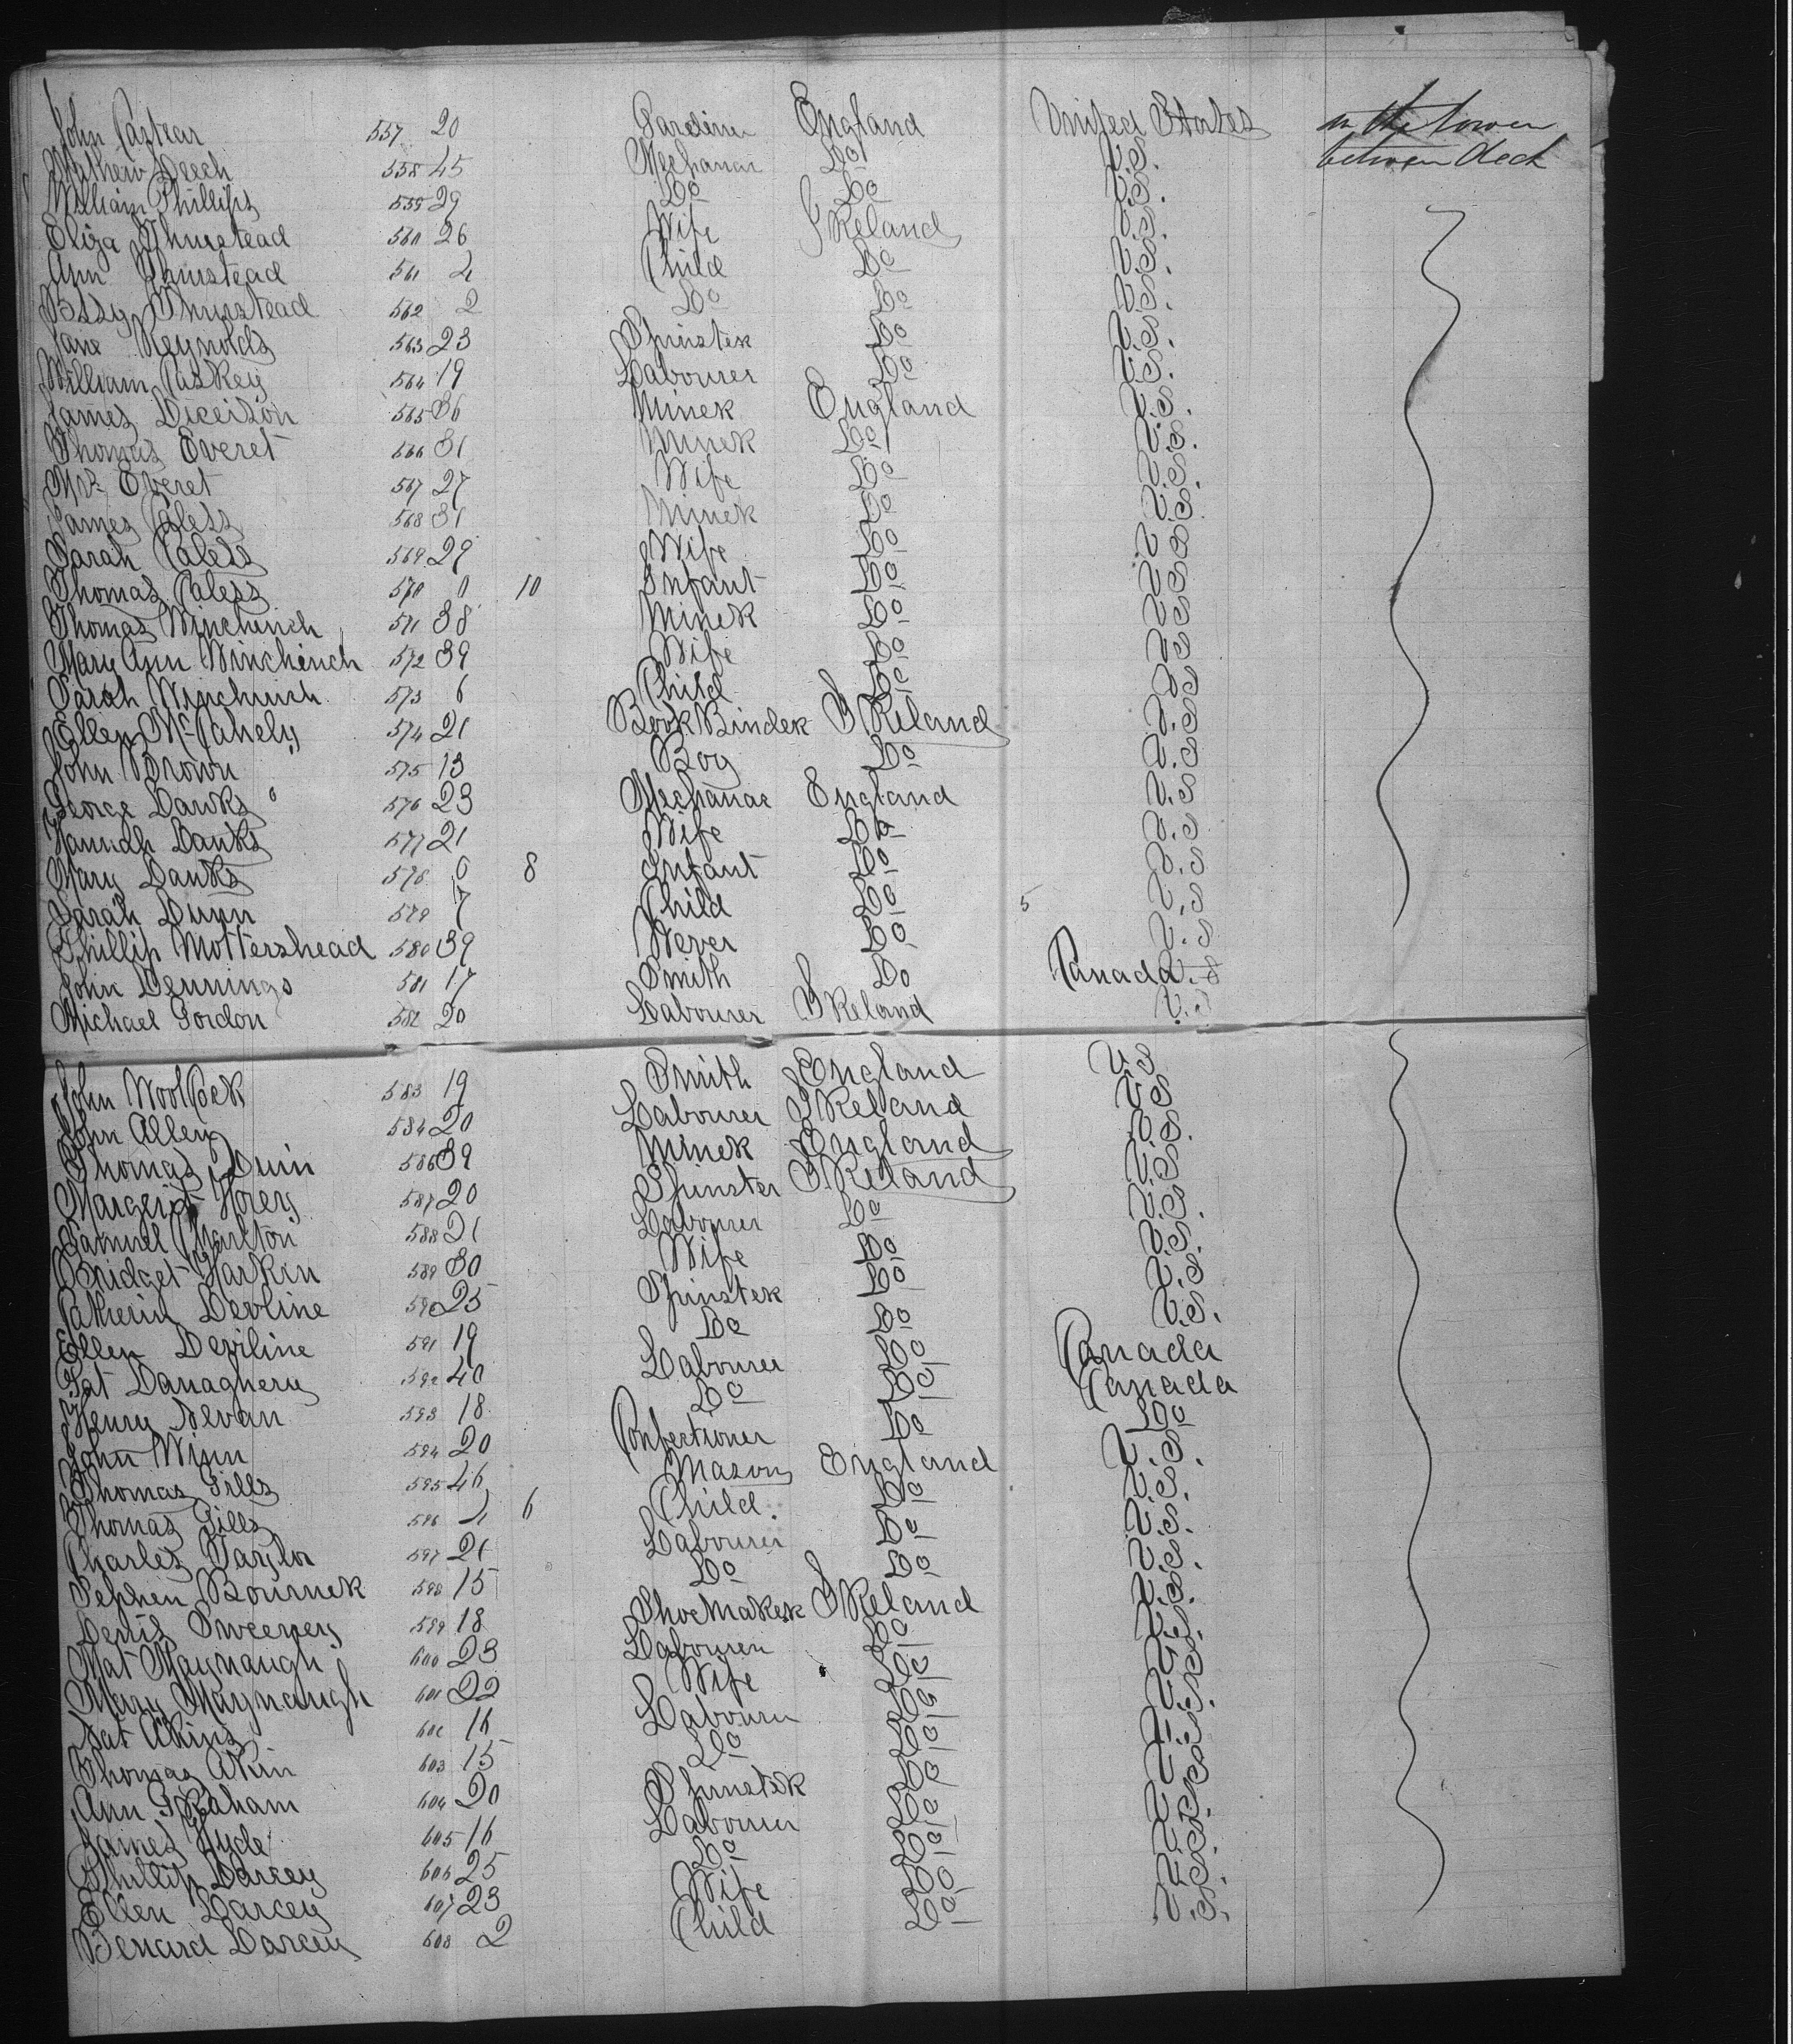 John Castear 557 20 Gardiner England United States in the lower
Mathew Deech 558 45 Mechanac Do U.S. between deck
William Phillips 559 29 Do Do U.S.
Eliza Thurstead 560 26 Wife IReland U.S.
Ann Thurstead 561 4 Child Do U.S.
Bssy Thurstead 562 2 Do Do U.S.
Jane Reynolds 563 23 Spinster Do U.S.
William Caskey 564 19 Labourer Do U.S.
James Diceison 565 36 Miner England U.S.
Thomas Everet 566 31 Miner Do U.S.
Mrs Everet 567 27 Wife Do U.S.
James Caless 568 31 Miner Do U.S
Sarah Caless 569 29 Wife Do U.S
Thomas Caless 570 0 10 Infant Do U.S
Thomas Winchurch 571 38 Miner Do U.S
Mary Ann Winchurch 572 39 Wife Do U.S
Sarah Winchurch 573 6 Child Do U.S
Ellen McCahely 574 21 Book Binder IReland U.S
John Brown 575 13 Boy Do U.S
George Danks 576 23 Mechanac England U.S
Hannah Danks 577 21 Wife Do U.S
Mary Danks 578 0 8 Infant Do U.S
Sarah Dunn 579 7 Child Do 5 U.S
Phillip Mottershead 580 39 Wever Do U.S
John Dennings 581 17 Smith Do Canada U.S
Michael Gordon 582 20 Labourer IReland U.S
John WoolCock 583 19 Smith England U.S
John Allen 584 20 Labourer IReland U.S
Thomas Dunn 586 39 Miner England U.S.
Margeriet Holey 587 20 Spinster IReland U.S
Samuel Charlton 588 21 Labourer Do U.S.
Bridget Harkin 589 30 Wife Do U.S.
Catherin Devline 590 25 Spinster Do U.S.
Ellen Deviline 591 19 Do Do U.S.
Pat Danaghery 592 40 Labourer Do Canada
Henry Nevan 593 18 Do Do Canada
John Winn 594 20 Confectioner Do Do
Thomas Gills 595 46 Mason England U.S.
Thomas Gills 596 6 Child Do U.S.
Charles Taylor 597 21 Labourer Do U.S.
Sephen Bourner 598 15 Do Do U.S.
Denis Sweeney 599 18 ShoeMaker IReland U.S.
Mat Maynaugh 600 23 Labourer Do U.S.
Mary Maynaugh 601 22 Wife Do U.S.
Pat Akins 602 16 Labourer Do U.S.
Thomas Akin 603 15 Do Do U.S.
Ann GRaham 604 20 Spinster Do U.S.
James Hyde 605 16 Labourer Do U.S.
Phillip Darcey 606 25 Do Do U.S.
Ellen Darcey 607 23 Wife Do U.S.
Benard Darcey 608 2 Child Do U.S.